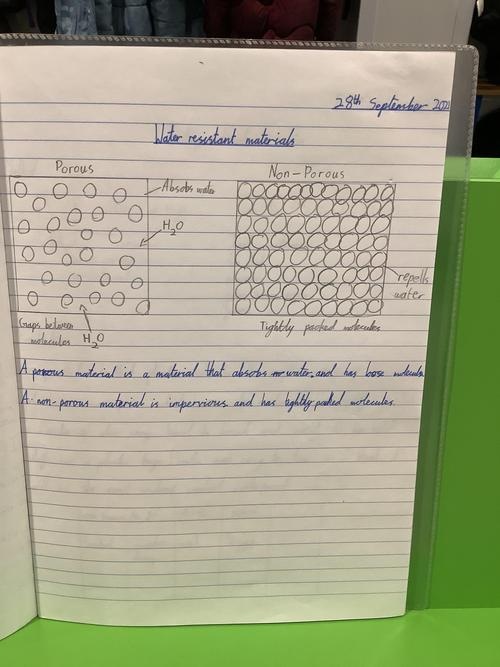 28th September 202
Water resistant materials
Porous
Non-Porous
Absorbs water
H₂O
repells
water
Gaps between
molecules
H₂O
Tightly packed molecules
A porous material is a material that absorbs water, and has loose molecules
A non-porous material is impervious and has tightly packed molecules.